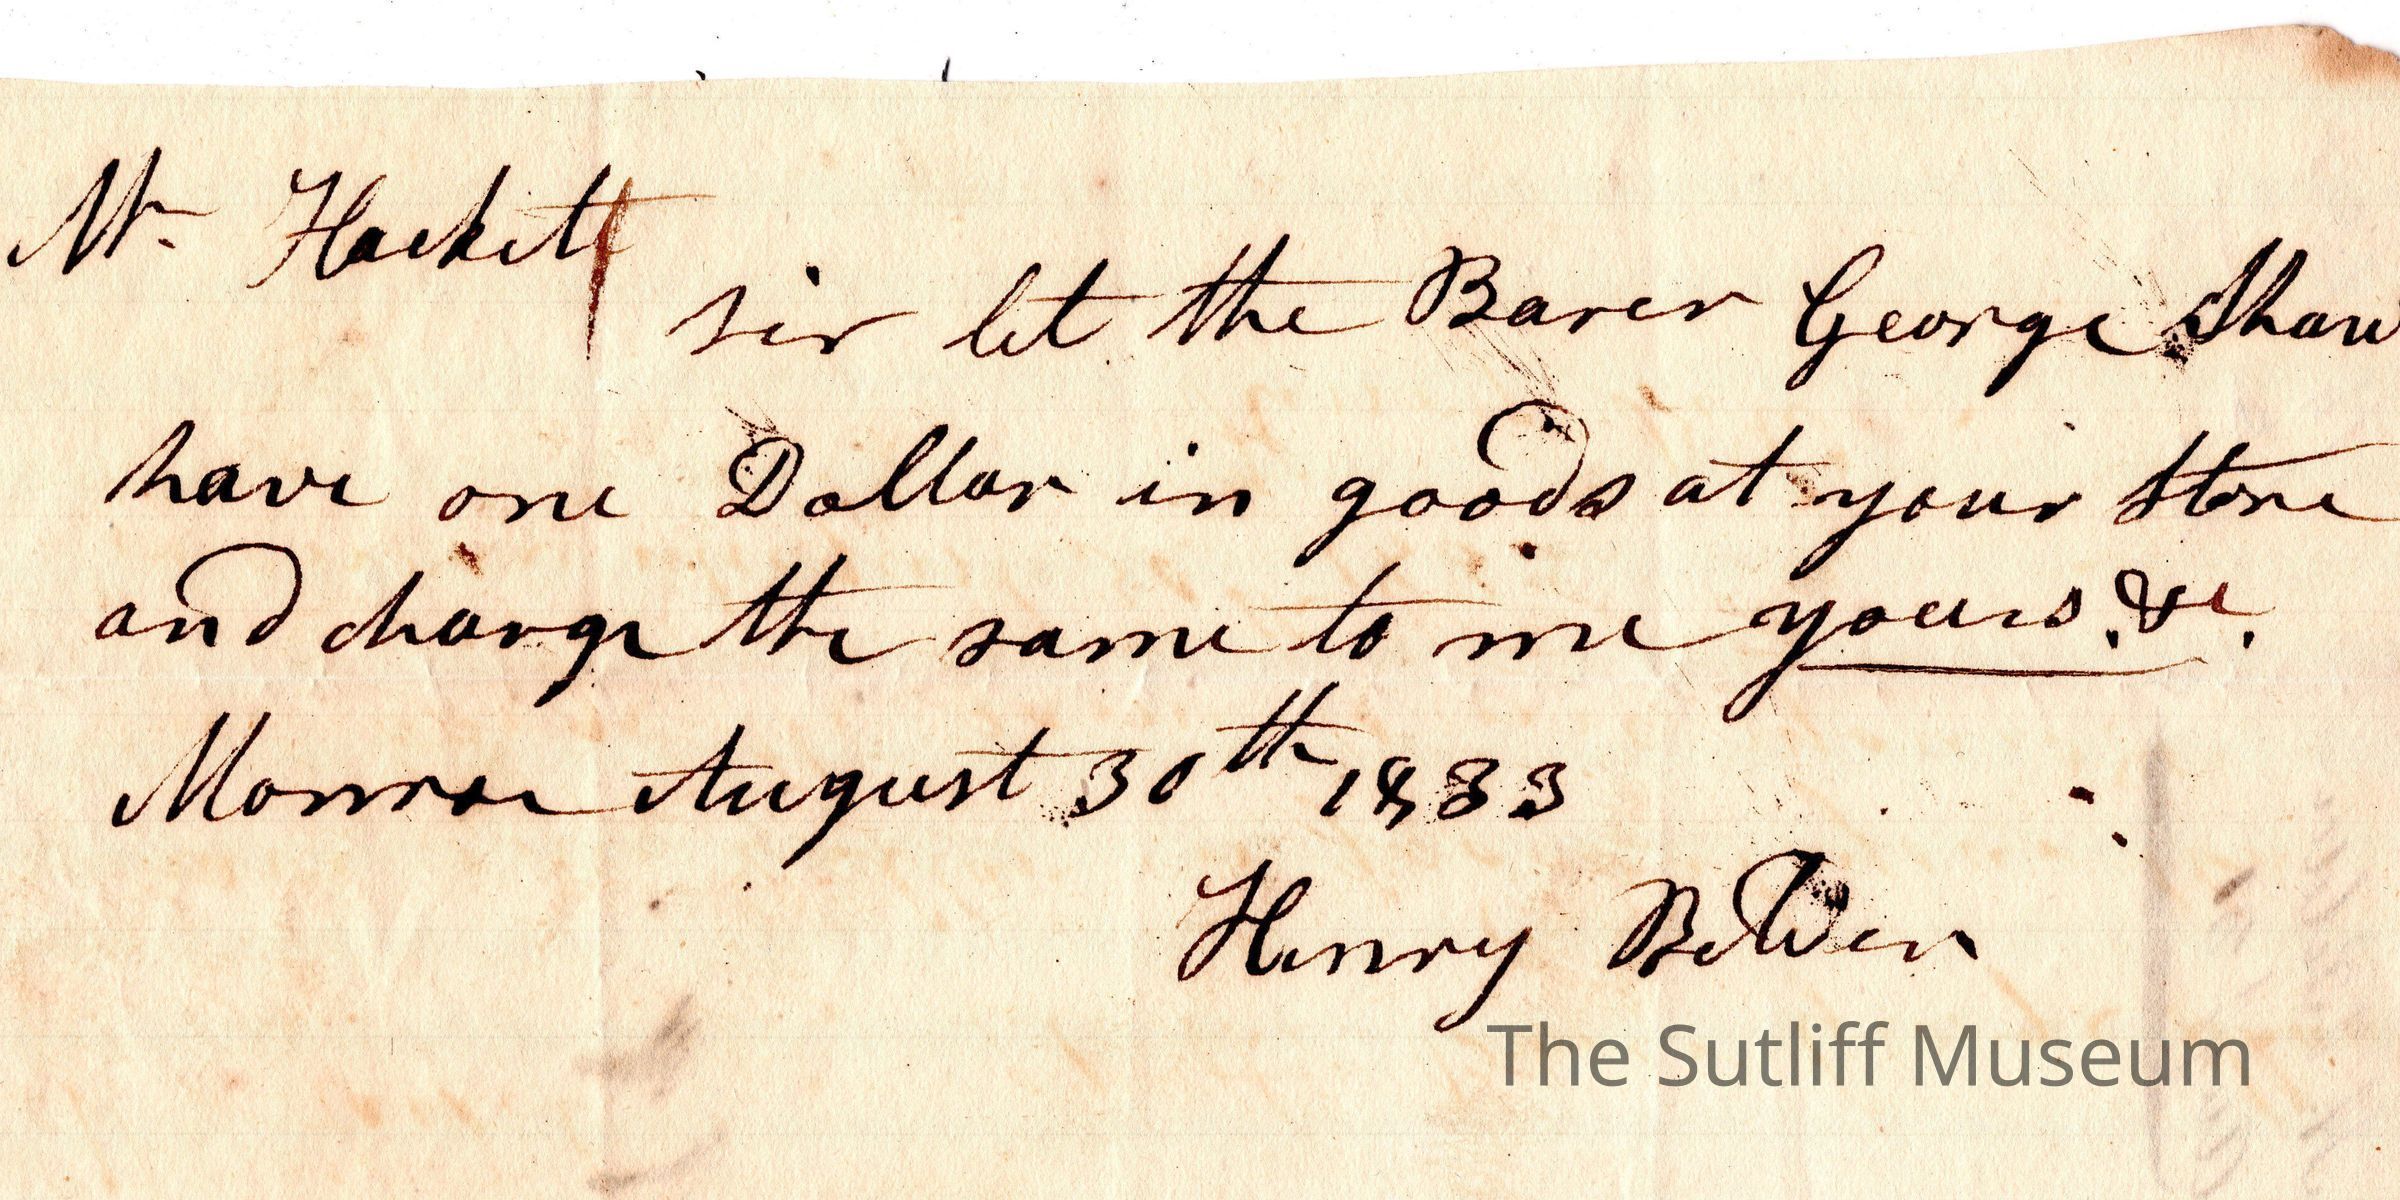 Mr Hackett
sir let the Barer George Shaw
have one Dollar in goods at your Store
and charge the same to me yours. &c.
Monroe August 30th 1833
Henry Belden
The Sutliff Museum